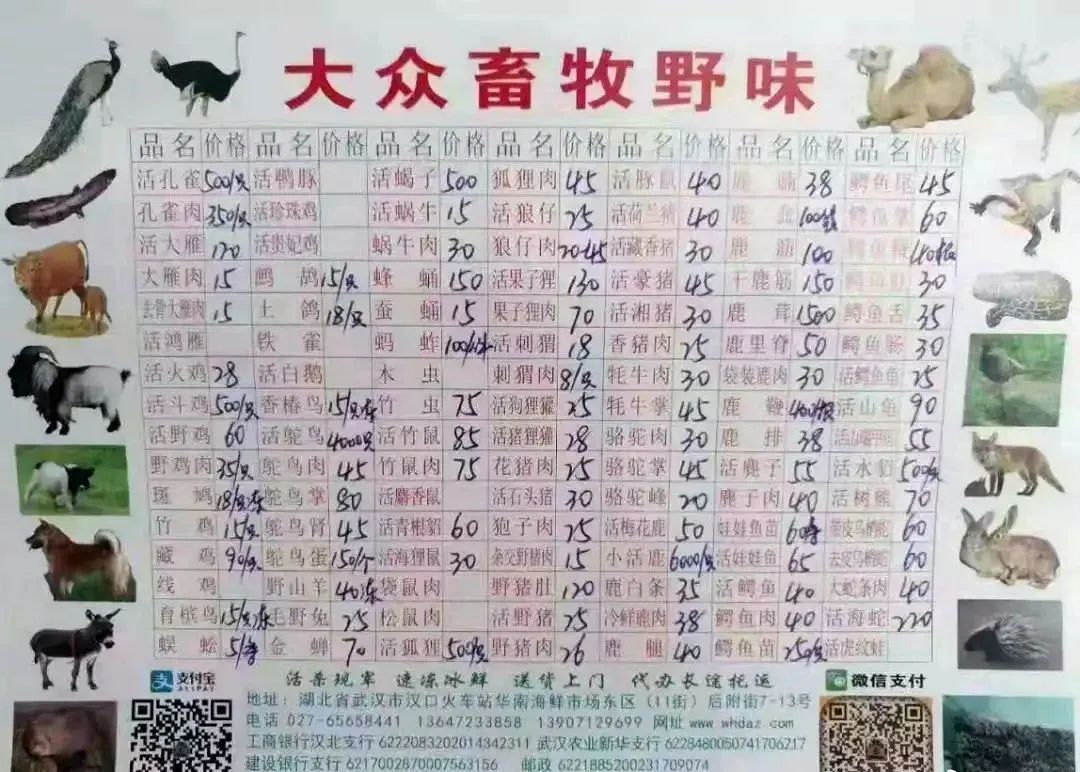 大众畜牧野味
品名 价格 品名 价格 品名 价格 品名 价格 品名 价格 品名 价格 品名 价格
活孔雀 500/只 活鸭豚 活蝎子 500 狐狸肉 45 活豚鼠 40 38 鳄鱼尾 45
孔雀肉 350/只 活珍珠鸡 活蜗牛 15 活狼仔 25 活荷兰猪 40 鳄鱼掌 60
活大雁 120 活贵妃鸡 蜗牛肉 30 狼仔肉 20-45 活藏香猪 30 鹿筋 100
大雁肉 15 鹧鸪 15/只 蜂蛹 150 活果子狸 130 活豪猪 45 干鹿筋 150 30
去骨大雁肉 15 土鸽 18/只 蚕蛹 15 果子狸肉 70 活湘猪 30 鹿茸 1500 鳄鱼舌 35
活鸿雁 铁雀 蚂蚱 活刺猬 18 香猪肉 25 鹿里脊 50 鳄鱼肠 30
活火鸡 28 活白鹅 木虫 刺猬肉 8/只 牦牛肉 30 袋装鹿肉 30 活鳄鱼龟 25
活斗鸡 500/只 香椿鸟 15/只冻 竹虫 75 活狗狸獾 25 牦牛掌 45 鹿鞭 活山龟 90
活野鸡 60 活鸵鸟 4000只 活竹鼠 85 活猪狸獾 28 骆驼肉 30 鹿排 38 55
野鸡肉 35/只 鸵鸟肉 45 竹鼠肉 75 花猪肉 25 骆驼掌 45 活麂子 55 活水貂 500/只
斑鸠 18/只冻 鸵鸟掌 80 活麝香鼠 活石头猪 30 骆驼峰 20 麂子肉 40 活树熊 70
竹鸡 15/只 鸵鸟肾 45 活青根貂 60 狍子肉 25 活梅花鹿 50 娃娃鱼苗 带皮乌梢蛇 60
藏鸡 90/只 鸵鸟蛋 150/个 活海狸鼠 30 杂交野猪肉 15 小活鹿 6000/只 活娃娃鱼 65 去皮乌梢蛇 60
线鸡 野山羊 40冻 袋鼠肉 野猪肚 120 鹿白条 35 活鳄鱼 40 大蛇条肉 40
育槟鸟 15/只冻 毛野兔 25 松鼠肉 活野猪 25 冷鲜鹿肉 38 鳄鱼肉 40 活海蛇 220
蜈蚣 金蝉 70 活狐狸 500/只 野猪肉 26 鹿腿 40 鳄鱼苗 250/只 活虎纹蛙
支付宝 ALIPAY 活杀现宰 速冻冰鲜 送货上门 代办长途托运 微信支付
地址：湖北省武汉市汉口火车站华南海鲜市场东区（11街）后附街7-13号
电话 027-65658441 13647233858 13907129699 网址 www whdaz.com
工商银行汉北支行 6222083202014342311 武汉农业新华支行 6228480050741706217
建设银行支行 6217002870007563156 邮政 6221885200231709074